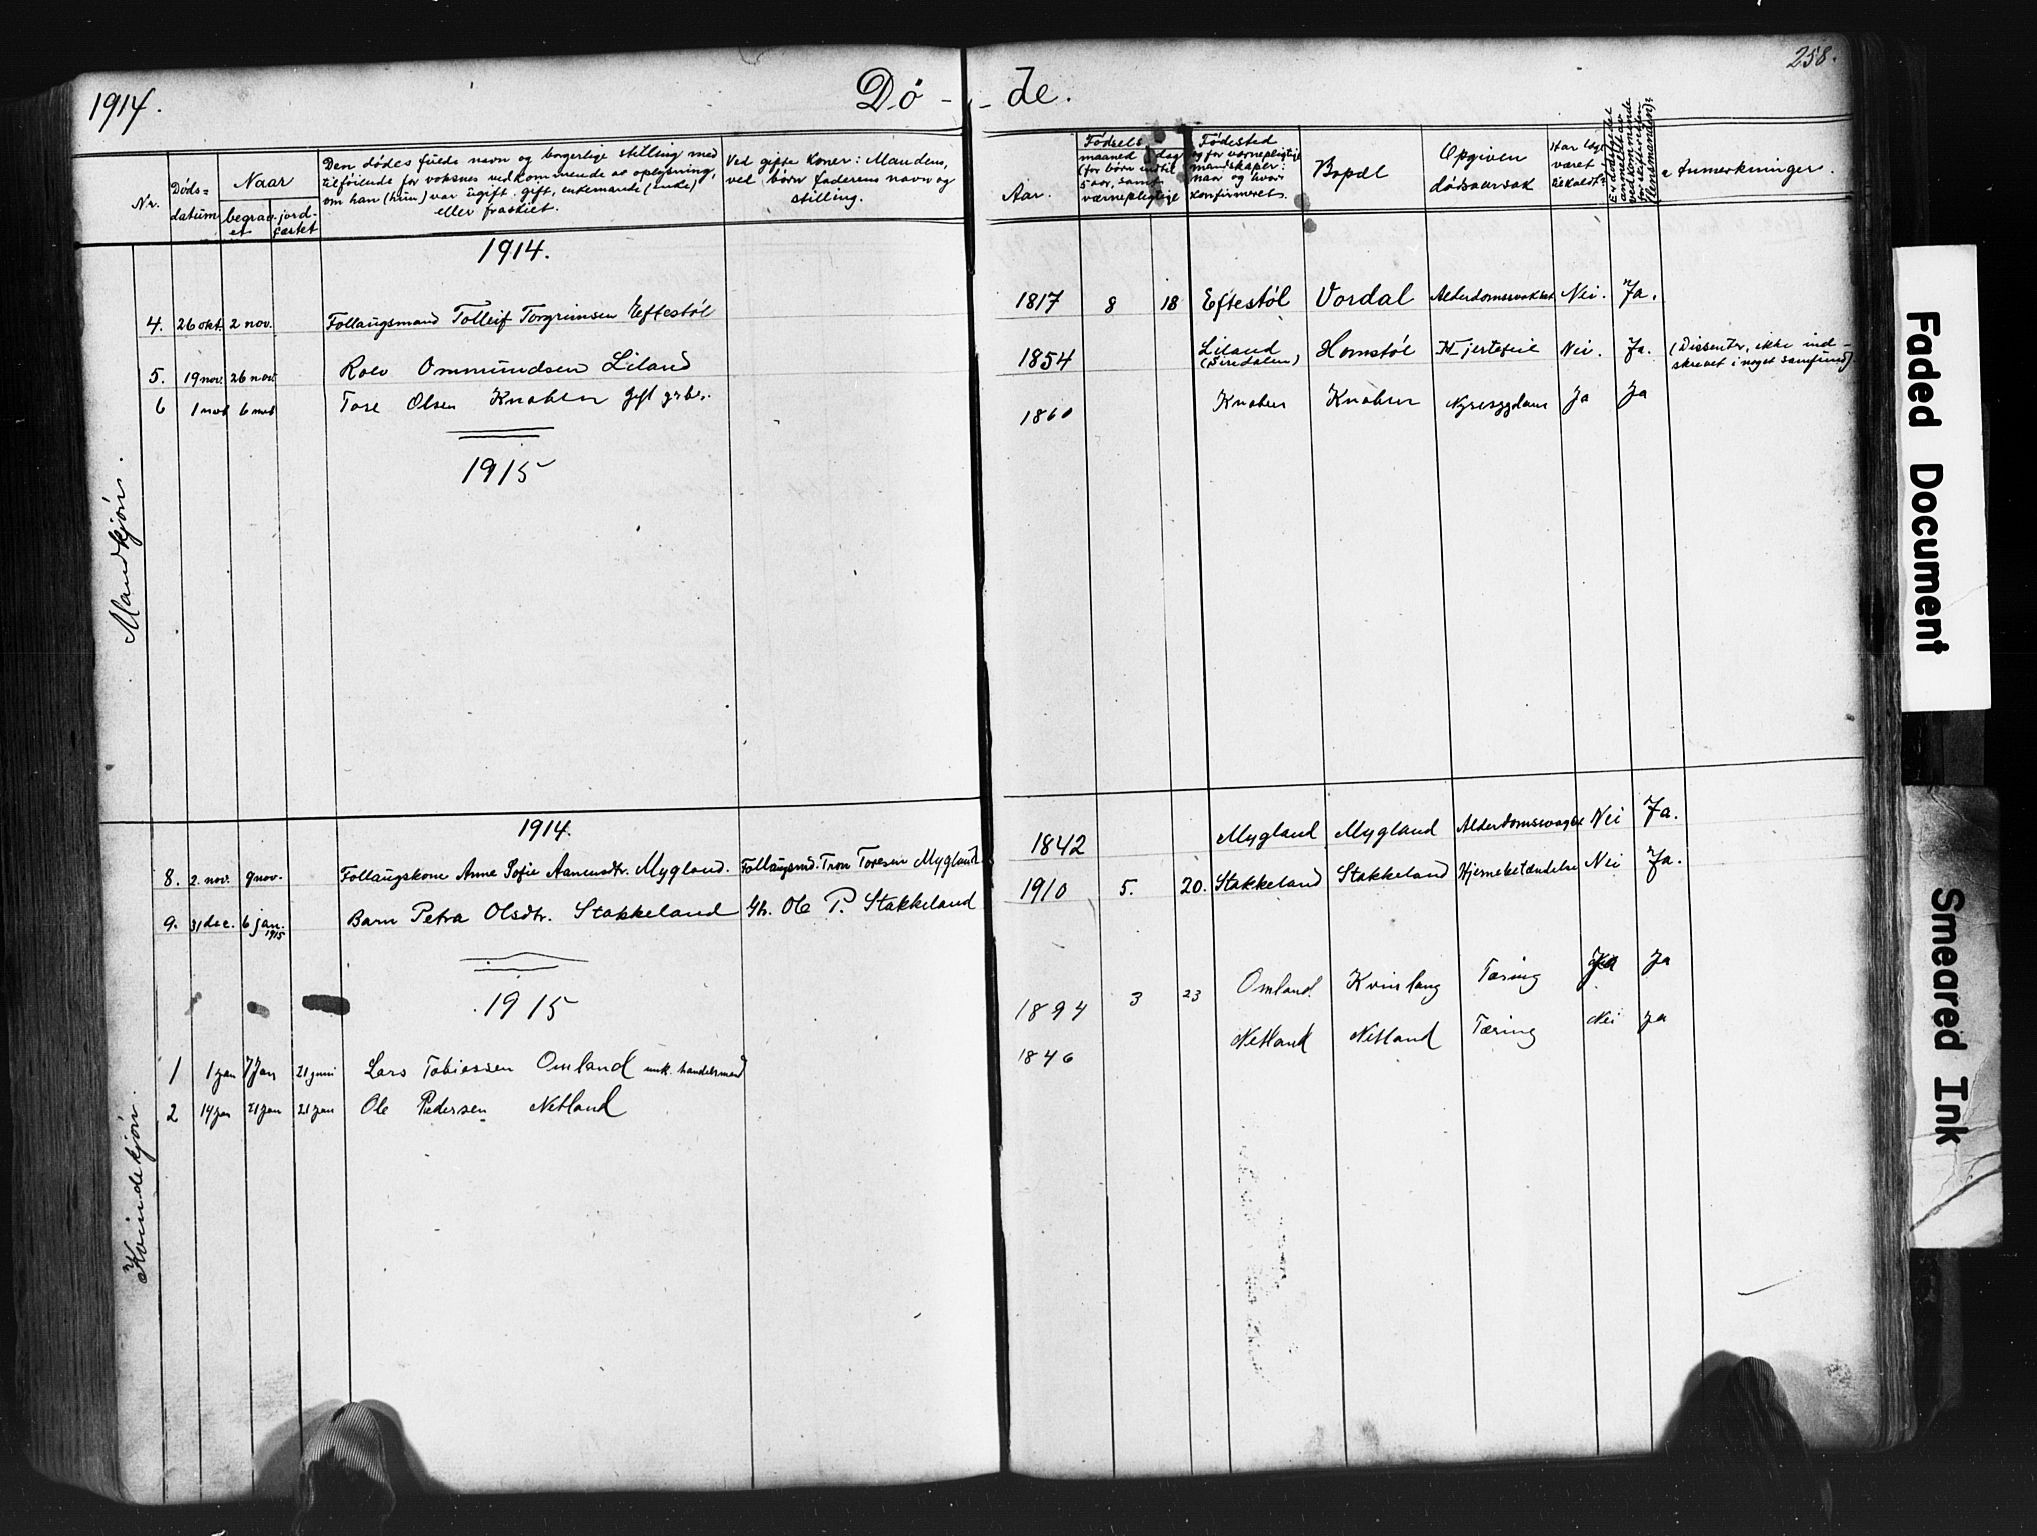 1914.
Dø - - de.
258.
Nr.
Døds=
datum
Naar
begrav-
et
jord-
fæstet
Den dødes fulde navn og borgerlige stilling med
tilføiende for voksnes vedkommende af oplysning,
om han (hun) var ugift, gift, enkemand (enke)
eller fraskilt.
Ved gifte koner: Mandens,
ved børn faderens navn og
stilling.
Aar.
Fødsels
maaned dag
(for børn indtil
5 aar, samt
værnepligtige
Fødested
og for værnepligtige
mandskaper:
naar og hvor
konfirmeret.
Bopæl
Opgiven
dødsaarsak
Har læge
været
tilkaldt?
Er dødsfaldet
anmeldt av
vedkommende
for skifteretten
(lensmanden)?
Anmerkninger.
Mandkjøn.
1914.
4. 26 okt. 2 nov. Follaugsmand Tolleif Torgrimsen Eftestøl 1817 8 18 Eftestøl Vordal Alderdomssvakhet Nei. Ja.
5. 19 nov. 26 nov. Rolv Ommundsen Liland 1854 Liland (Sirdalen) Homstøl Hjertefeil Nei. Ja. (Dissenter, ikke ind-
skrevet i noget samfund)
6 1 nov 6 nov Tore Olsen Knaben gift grbr. 1860 Knaben Knaben Nyresygdom Ja Ja
1915
Kvindekjøn.
1914.
8. 2. nov. 9 nov. Follaugskone Anne Sofie Aanensdtr. Mygland. Follaugsmd. Tron Toresen Mygland 1842 Mygland Mygland Alderdomssvaghet Nei Ja.
9. 31 dec. 6 jan. 1915 Barn Petra Olsdtr. Stakkeland Gb. Ole P. Stakkeland 1910 5. 20. Stakkeland Stakkeland Hjernebetændelse Nei Ja.
1915
1 1 jan 7 Jan 21 juni Lars Tobiassen Omland unk. handelsmand 1894 3 23 Omland. Kvinlang Tæring Ja Ja
2 14 jan 21 jan 21 jan Ole Pedersen Netland 1846 Netland Netland Tæring Nei Ja
Faded Document
Smeared Ink